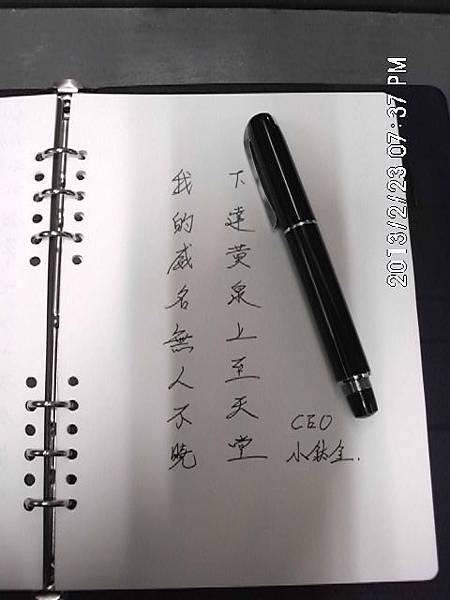 下達黃泉上至天堂
我的威名無人不曉
CEO
小鈦金.
2013/2/23 07:37 PM